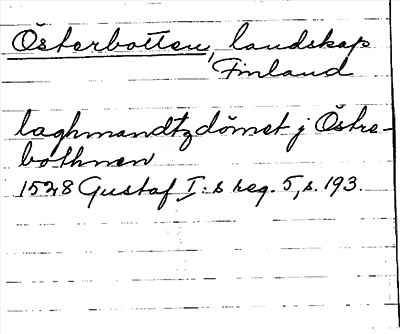 Österbotten, landskap
Finland
laghmandtzdömet j Östre-
bothnen
1528 Gustaf I:s reg. 5, s. 193.